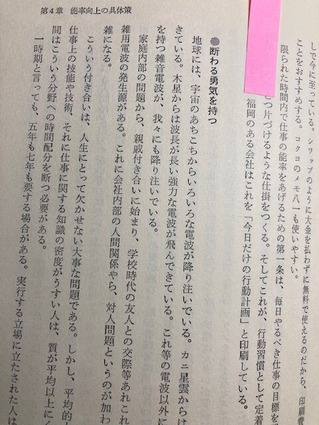 第4章 能率向上の具体策
しで今に至っている。シリップのように大金を払わずに無料で使えるのだから、印刷費
ことをおすすめする。コクヨのメモ八一も使いやすい。
限られた時間内で仕事の能率をあげるための第一条は、毎日やるべき仕事の目標を
つ片づけるような仕掛をつくる。そしてこれが、行動習慣として定着
福岡のある会社はこれを「今日だけの行動計画」と印刷している。
●断わる勇気を持つ
地球には、宇宙のあちこちからいろいろな電波が降り注いでいる。カニ星雲からは
きている。木星からは波長が長い強力な電波が飛んできている。これ等の電波以外に
を持つ雑音電波が、我々にも降り注いでいる。
家庭内部の問題から、親戚付き合いに始まり、学校時代の友人との交際等あれこれ
雑用電波の発生源がある。これに会社内部の人間関係やら、対人問題というのが加わ
雑になる。
こういう付き合いは、人生にとって欠かせない大事な問題である。しかし、平均的
仕事上の技能や技術、それに仕事に関する知識の密度がうすい人は、質が平均以上にく
間はこういう分野への時間配分を断つ必要がある。
一時期と言っても、五年も七年も要する場合がある。実行する立場に立たされた人は